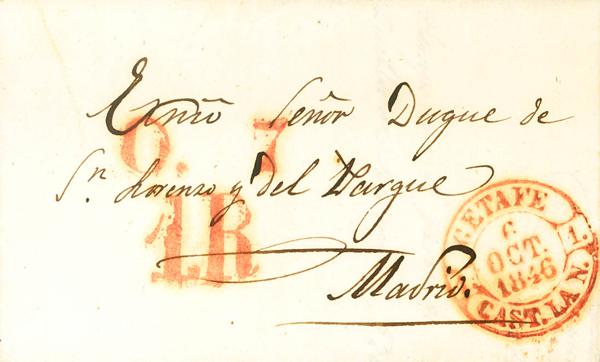 Exmõ Señor Duque de
Sn. Lorenzo y del Parque
Madrid.
6. 7
1R
GETAFE
6
OCT.
1846
CAST. LA N. 1.